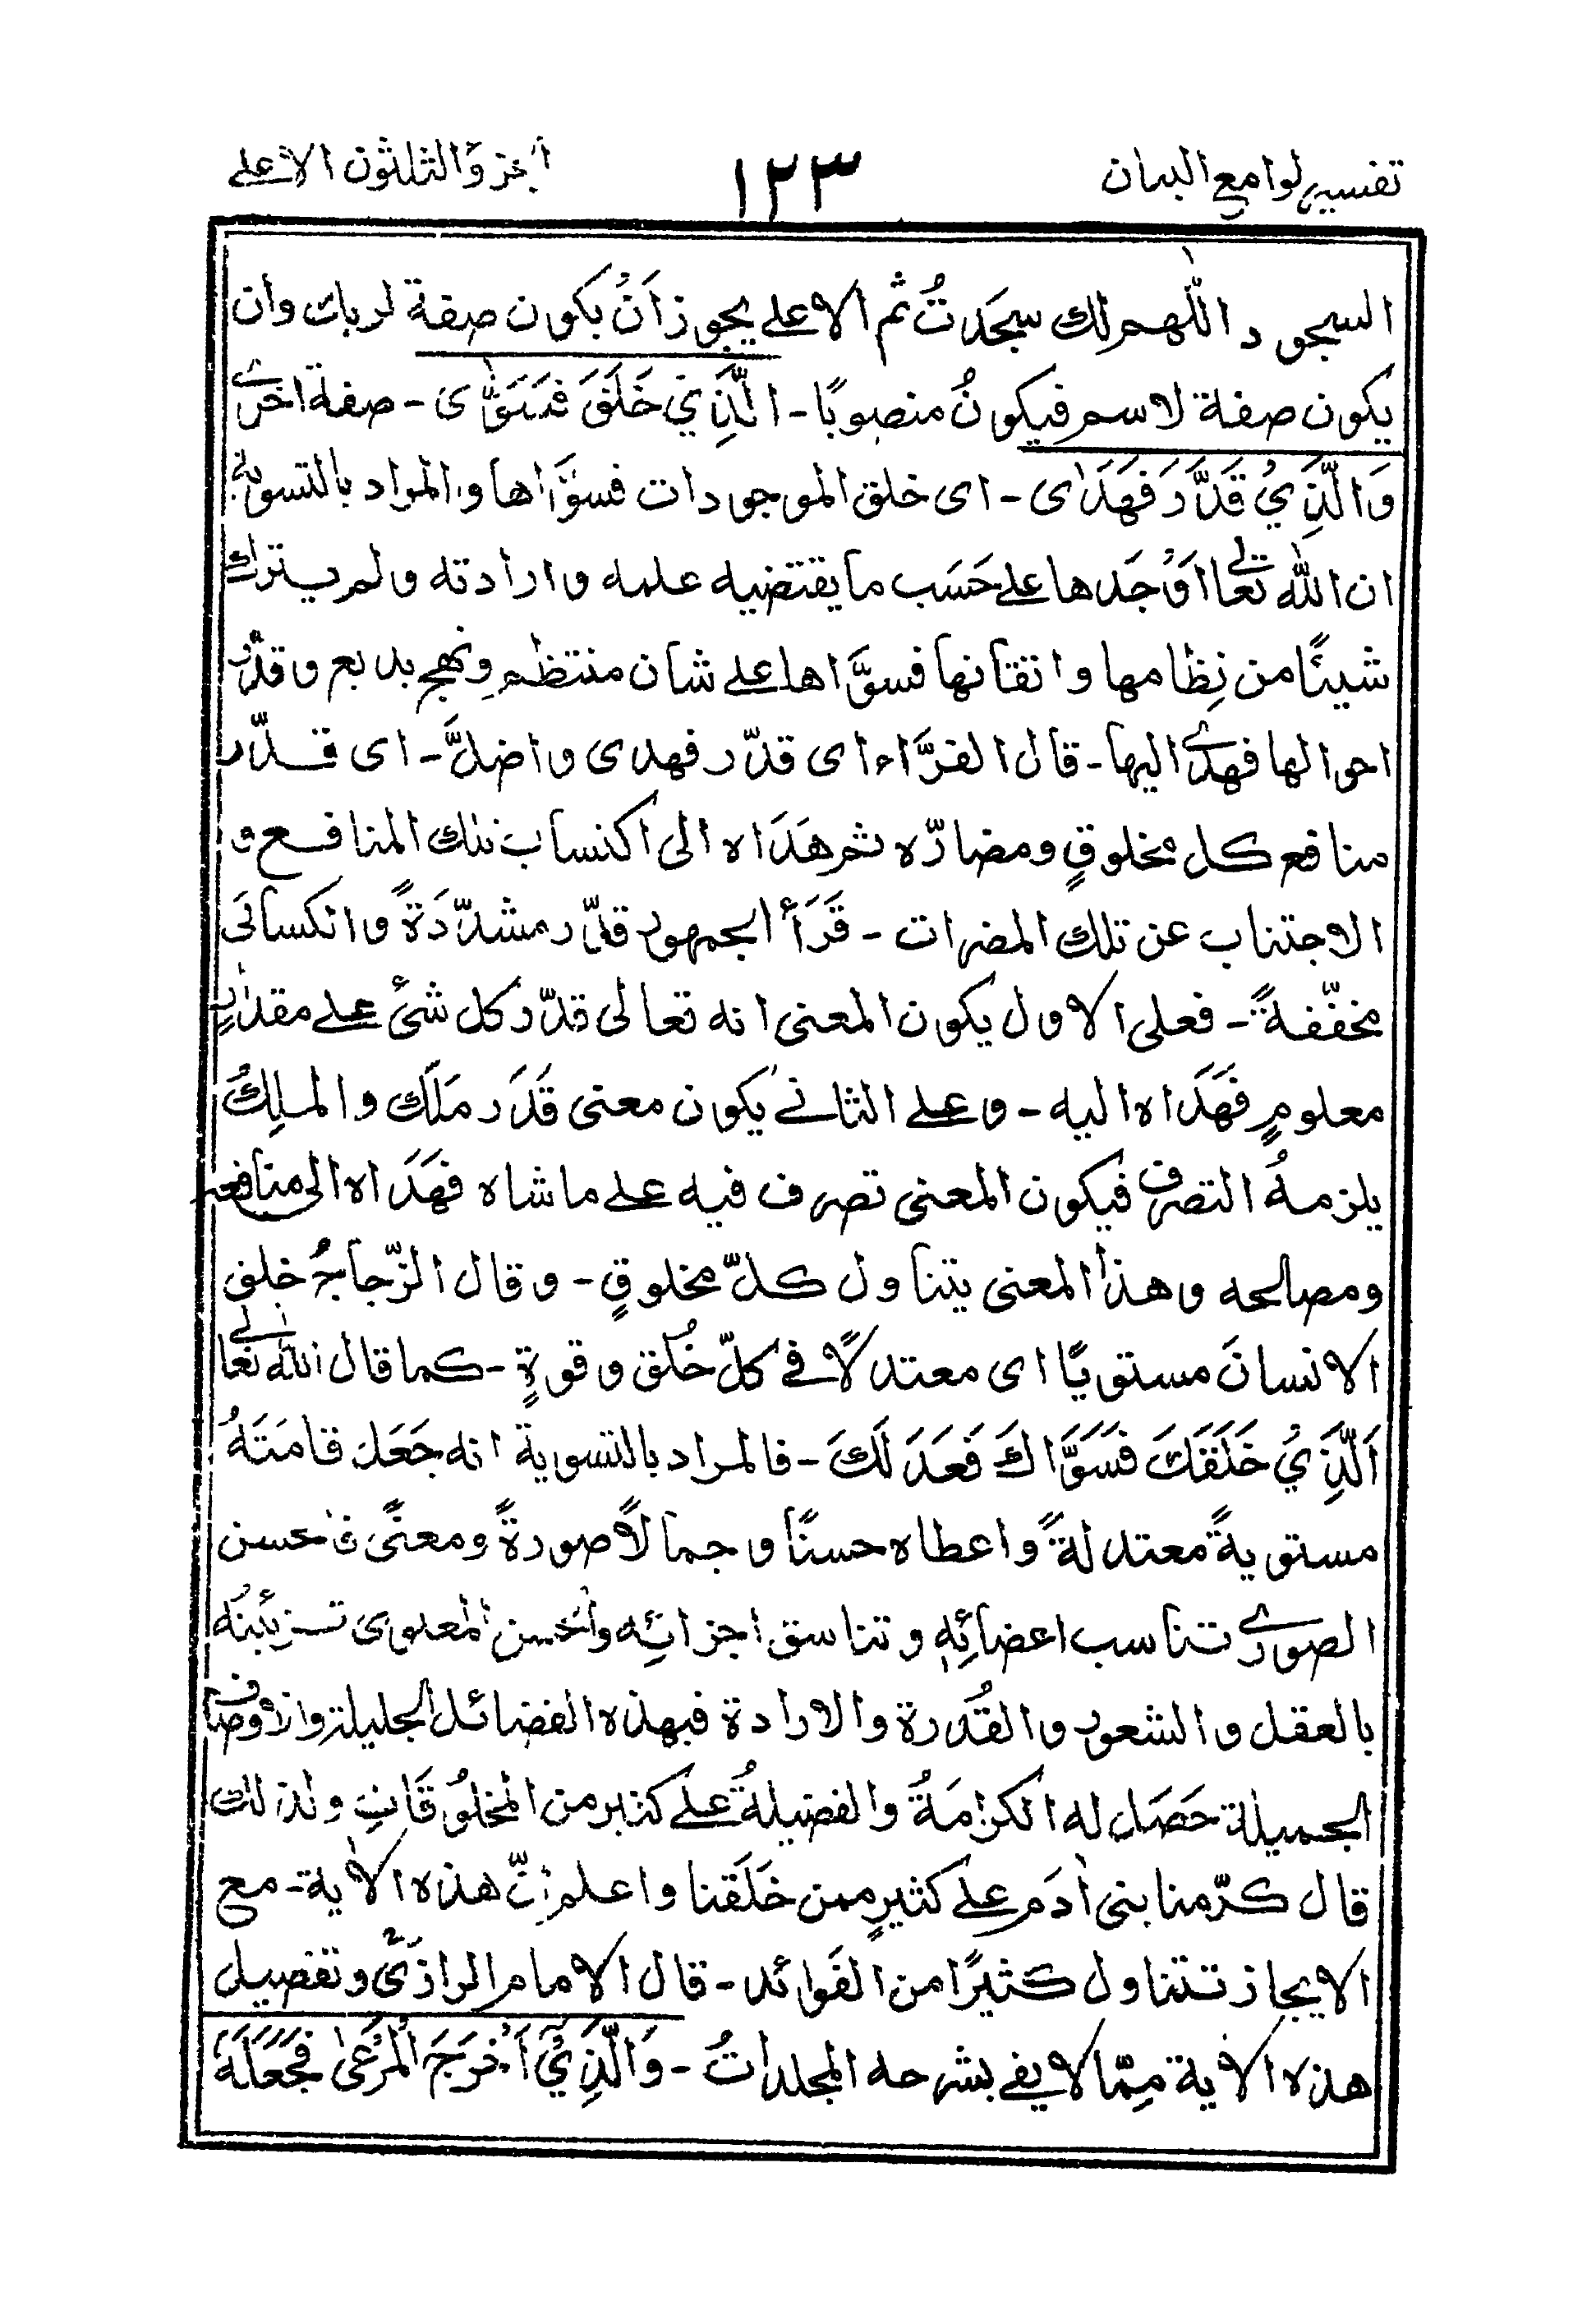 تفسير لوامع البيان ١٢٣ الجزو الثلثون الاعلے
السجود اللّٰهم لك سجَدتُ ثم الاعلے يجوز اَنْ يكون صفة لربك وان
يكون صفة لاسم فيكونُ منصوبًا - الَّذِيْ خَلَقَ فَسَوّٰى - صفة اخرے
وَالَّذِيْ قَدَّرَ فَهَدَاى - اى خلق الموجودات فسوَّاها والمراد بالتسوية
ان اللّٰه تعالے اَوْجَدها علے حَسَب ما يقتضيه علمه وارادته ولم يترك
شيئًا من نِظامها واتقانها فسوَّاها علے شان منتظم ونهج بديع وقدَّر
احوالها فهدے اليها - قال الفرَّاء اى قدّر فهدى واضلَّ - اى قدّر
منافع كل مخلوقٍ ومضارّه ثم هَدَاه الى اكتساب تلك المنافع و
الاجتناب عن تلك المضرات - قَرَأَ الجمهور قدّر مشدّدَةً والكسائى
مخفّفةً - فعلى الاول يكون المعنى انه تعالى قدّر كل شئ علے مقدارٍ
معلومٍ فَهَدَاه اليه - وعلے الثانے يكون معنى قَدَر مَلَك والملِكُ
يلزمهُ التصرف فيكون المعنى تصرف فيه علے ما شاه فَهَدَاه الى منافعه
ومصالحه وهذا المعنى يتناول كلّ مخلوقٍ - وقال الزّجاجُ خلق
الانسانَ مستويًا اى معتدلًا فے كلّ خُلق وقوةٍ - كما قال اللّٰه تعالے
اَلَّذِيْ خَلَقَكَ فَسَوَّاكَ فَعَدَ لَكَ - فالمراد بالتسوية انه جَعَل قامَتَهُ
مستويةً معتدلةً واعطاه حسنًا وجمالًا صورةً ومعنًى فالحسن
الصورے تناسب اعضائِهٖ وتناسق اجزائِه والحسن المعنوى تزئينُه
بالعقل والشعور والقُدرة والارادة فبهذه الفضائل الجليلة والاوصاف
الجميلة حَصَل له الكرامَةُ والفضيلةُ علے كثير من المخلوُقَاتِ ولذلك
قال كرّمنا بنى اٰدَم علے كثيرٍ ممن خَلَقنا واعلم انّ هذه الاٰية - مع
الايجاز تتناول كثيرًا من الفَوائد - قال الامام الرازىؒ وتفصيل
هذه الاٰية مِمّا لا يفے بشرحه المجلداتُ - وَالَّذِيْٓ اَخْرَجَ الْمَرْعٰى فَجَعَلَهٗ